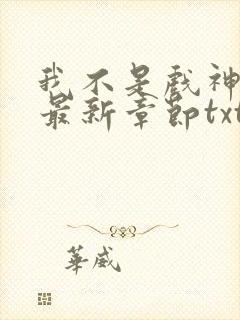 我不是戲神
最新章節txt
華威